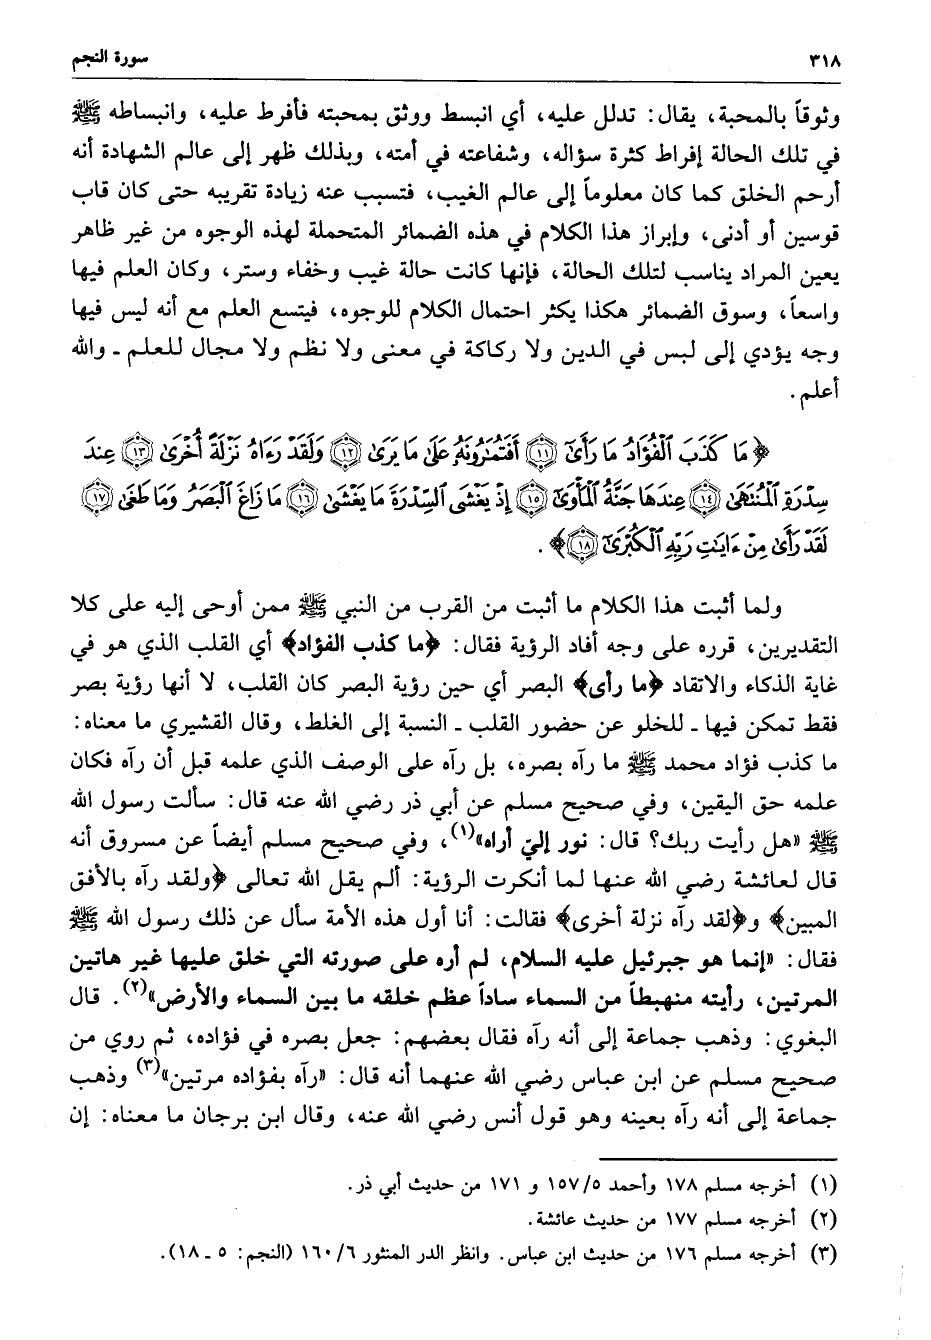 ٣١٨ سورة النجم
وثوقاً بالمحبة، يقال: تدلل عليه، أي انبسط ووثق بمحبته فأفرط عليه، وانبساطه ﷺ
في تلك الحالة إفراط كثرة سؤاله، وشفاعته في أمته، وبذلك ظهر إلى عالم الشهادة أنه
أرحم الخلق كما كان معلوماً إلى عالم الغيب، فتسبب عنه زيادة تقريبه حتى كان قاب
قوسين أو أدنى، وإبراز هذا الكلام في هذه الضمائر المتحملة لهذه الوجوه من غير ظاهر
يعين المراد يناسب لتلك الحالة، فإنها كانت حالة غيب وخفاء وستر، وكان العلم فيها
واسعاً، وسوق الضمائر هكذا يكثر احتمال الكلام للوجوه، فيتسع العلم مع أنه ليس فيها
وجه يؤدي إلى لبس في الدين ولا ركاكة في معنى ولا نظم ولا مجال للعلم ـ والله
أعلم.
﴿مَا كَذَبَ ٱلْفُؤَادُ مَا رَأَىٰٓ ﴿١١﴾ أَفَتُمَٰرُونَهُۥ عَلَىٰ مَا يَرَىٰ ﴿١٢﴾ وَلَقَدْ رَءَاهُ نَزْلَةً أُخْرَىٰ ﴿١٣﴾ عِندَ
سِدْرَةِ ٱلْمُنتَهَىٰ ﴿١٤﴾ عِندَهَا جَنَّةُ ٱلْمَأْوَىٰٓ ﴿١٥﴾ إِذْ يَغْشَى ٱلسِّدْرَةَ مَا يَغْشَىٰ ﴿١٦﴾ مَا زَاغَ ٱلْبَصَرُ وَمَا طَغَىٰ ﴿١٧﴾
لَقَدْ رَأَىٰ مِنْ ءَايَٰتِ رَبِّهِ ٱلْكُبْرَىٰٓ ﴿١٨﴾﴾.
ولما أثبت هذا الكلام ما أثبت من القرب من النبي ﷺ ممن أوحى إليه على كلا
التقديرين، قرره على وجه أفاد الرؤية فقال: ﴿ما كذب الفؤاد﴾ أي القلب الذي هو في
غاية الذكاء والاتقاد ﴿ما رأى﴾ البصر أي حين رؤية البصر كان القلب، لا أنها رؤية بصر
فقط تمكن فيها ـ للخلو عن حضور القلب ـ النسبة إلى الغلط، وقال القشيري ما معناه:
ما كذب فؤاد محمد ﷺ ما رآه بصره، بل رآه على الوصف الذي علمه قبل أن رآه فكان
علمه حق اليقين، وفي صحيح مسلم عن أبي ذر رضي الله عنه قال: سألت رسول الله
ﷺ «هل رأيت ربك؟ قال: نور إليّ أراه»(١)، وفي صحيح مسلم أيضاً عن مسروق أنه
قال لعائشة رضي الله عنها لما أنكرت الرؤية: ألم يقل الله تعالى ﴿ولقد رآه بالأفق
المبين﴾ و﴿لقد رآه نزلة أخرى﴾ فقالت: أنا أول هذه الأمة سأل عن ذلك رسول الله ﷺ
فقال: «إنما هو جبرئيل عليه السلام، لم أره على صورته التي خلق عليها غير هاتين
المرتين، رأيته منهبطاً من السماء ساداً عظم خلقه ما بين السماء والأرض»(٢). قال
البغوي: وذهب جماعة إلى أنه رآه فقال بعضهم: جعل بصره في فؤاده، ثم روي من
صحيح مسلم عن ابن عباس رضي الله عنهما أنه قال: «رآه بفؤاده مرتين»(٣) وذهب
جماعة إلى أنه رآه بعينه وهو قول أنس رضي الله عنه، وقال ابن برجان ما معناه: إن
(١) أخرجه مسلم ١٧٨ وأحمد ١٥٧/٥ و ١٧١ من حديث أبي ذر.
(٢) أخرجه مسلم ١٧٧ من حديث عائشة.
(٣) أخرجه مسلم ١٧٦ من حديث ابن عباس. وانظر الدر المنثور ١٦٠/٦ (النجم: ٥ ـ ١٨).